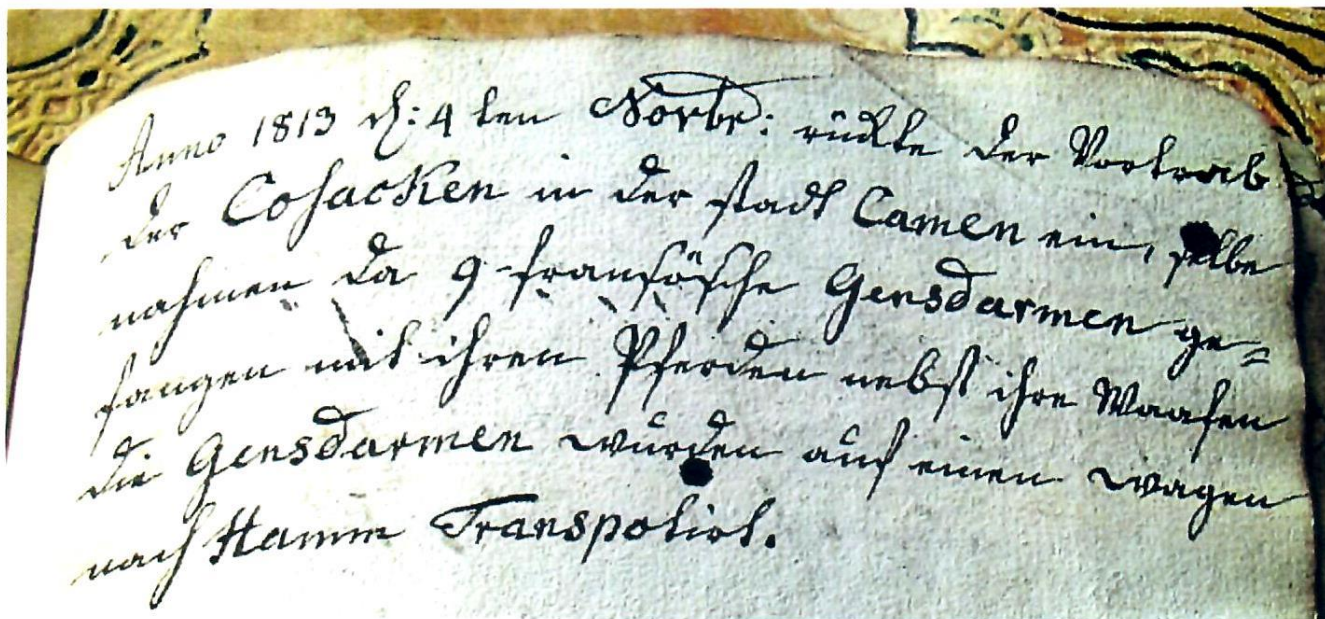 Anno 1813 d: 4 ten Novbr: rückte der Vortrab
der Cosacken in der stadt Camen ein, selbe
nahmen da 9 fransösche Gensdarmen ge=
fangen mit ihren Pferden nebst ihre Waafen
die Gensdarmen wurden auf einen wagen
nach Hamm Transpotirt.